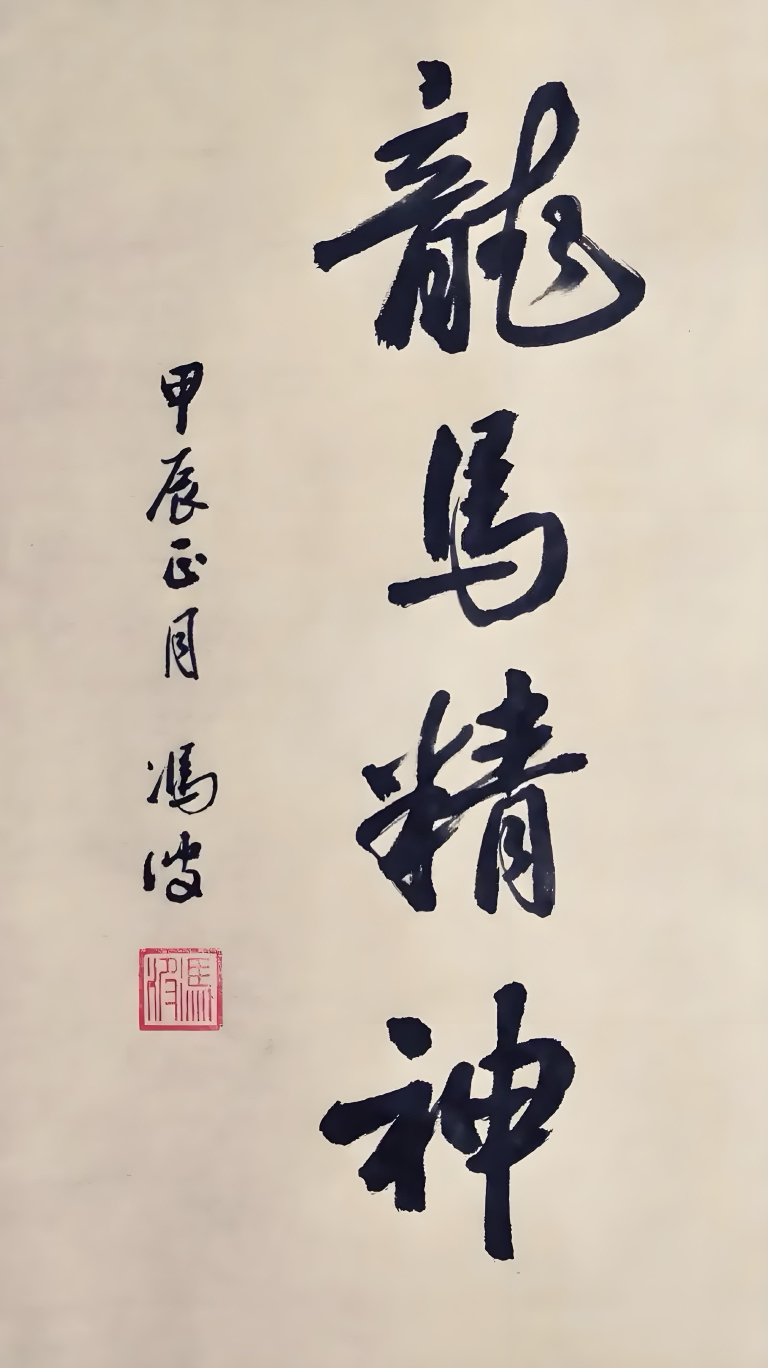 龍馬精神
甲辰正月 馮波
馮波